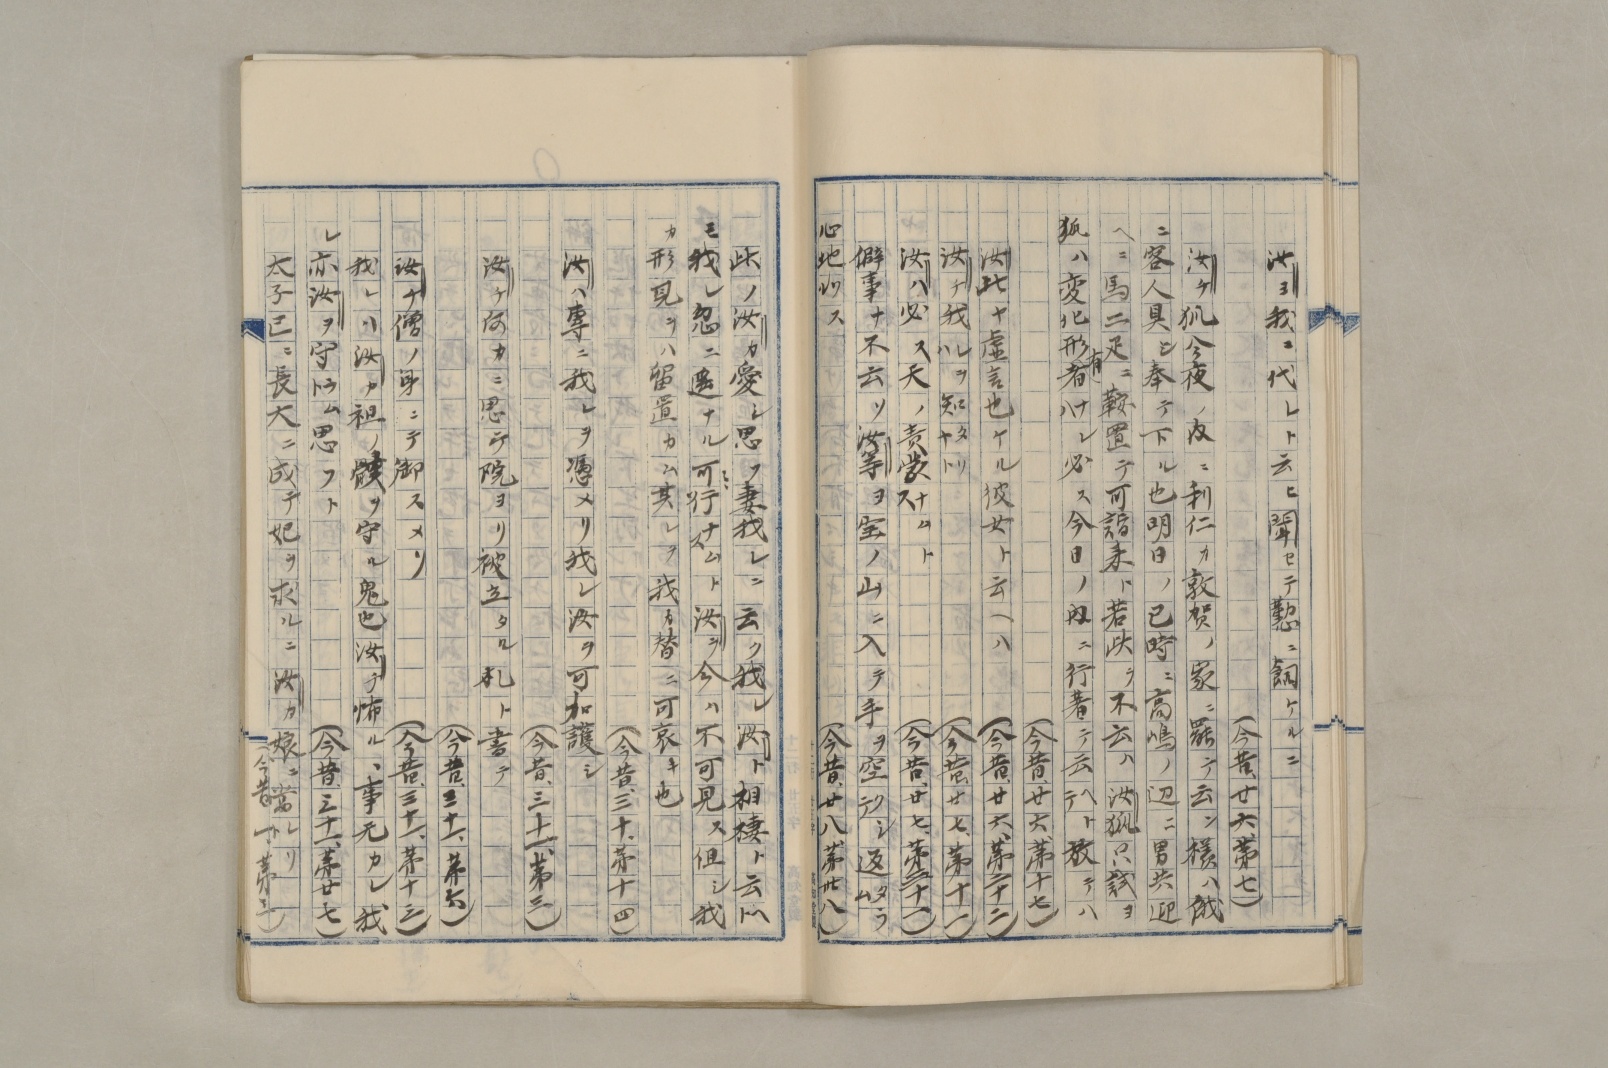 汝ヨ我ニ代レト云ヒ聞セテ懃ニ飼ケルニ
（今昔、廿六、第七）
汝ケ狐今夜ノ内ニ利仁カ敦賀ノ家ニ罷テ云ン様ハ俄
ニ客人具シ奉テ下ル也明日ノ巳時ニ高嶋ノ辺ニ男共迎
ヘニ馬二疋ニ鞍置テ可詣来ト若此ヲ不云ハ汝狐只試ヨ
狐ハ変化有形者ナレハ必ス今日ノ内ニ行着テ云ヘトテ放テハ
（今昔、廿六、第十七）
汝此ヤ虚言也ケル彼女ト云ヘハ
（今昔、廿六、第二十二）
汝ヂ我レハヲ知タリヤト
（今昔、廿七、第十一）
汝ハ必ス天ノ責蒙ナムスト
（今昔、廿七、第三十一）
僻事ナ不云ソ汝等ヨ宝ノ山ニ入テ手ヲ空クシテ返タラム
心地リス
（今昔、廿八、第卅八）
此ノ汝カ愛シ思フ妻我レニ云ク我レ汝ト相棲ト云ヘト
モ我レ忽ニ遥ナル可行ナムスト汝ヲ今ハ不可見ス但シ我
カ形見ヲハ留置カム其レヲ我カ替ニ可哀キ也
（今昔、三十、第十四）
汝ハ専ニ我レヲ憑メリ我レ汝ヲ可加護シ
（今昔、三十一、第三）
汝ケ何カニ思テ院ヨリ被立タル札ト書テ
（今昔、三十一、第六）
汝ナ僧ノ身ニテ御スメリ
（今昔、三十一、第十三）
我レハ汝カ祖ノ骸ヲ守ル鬼也汝ヂ怖ルヽ事无カレ我
レ亦汝ヲ守ラムト思フト
（今昔、三十一、第廿七）
太子已ニ長大ニ成テ妃ヲ求ルニ汝カ娘ニ當レリ